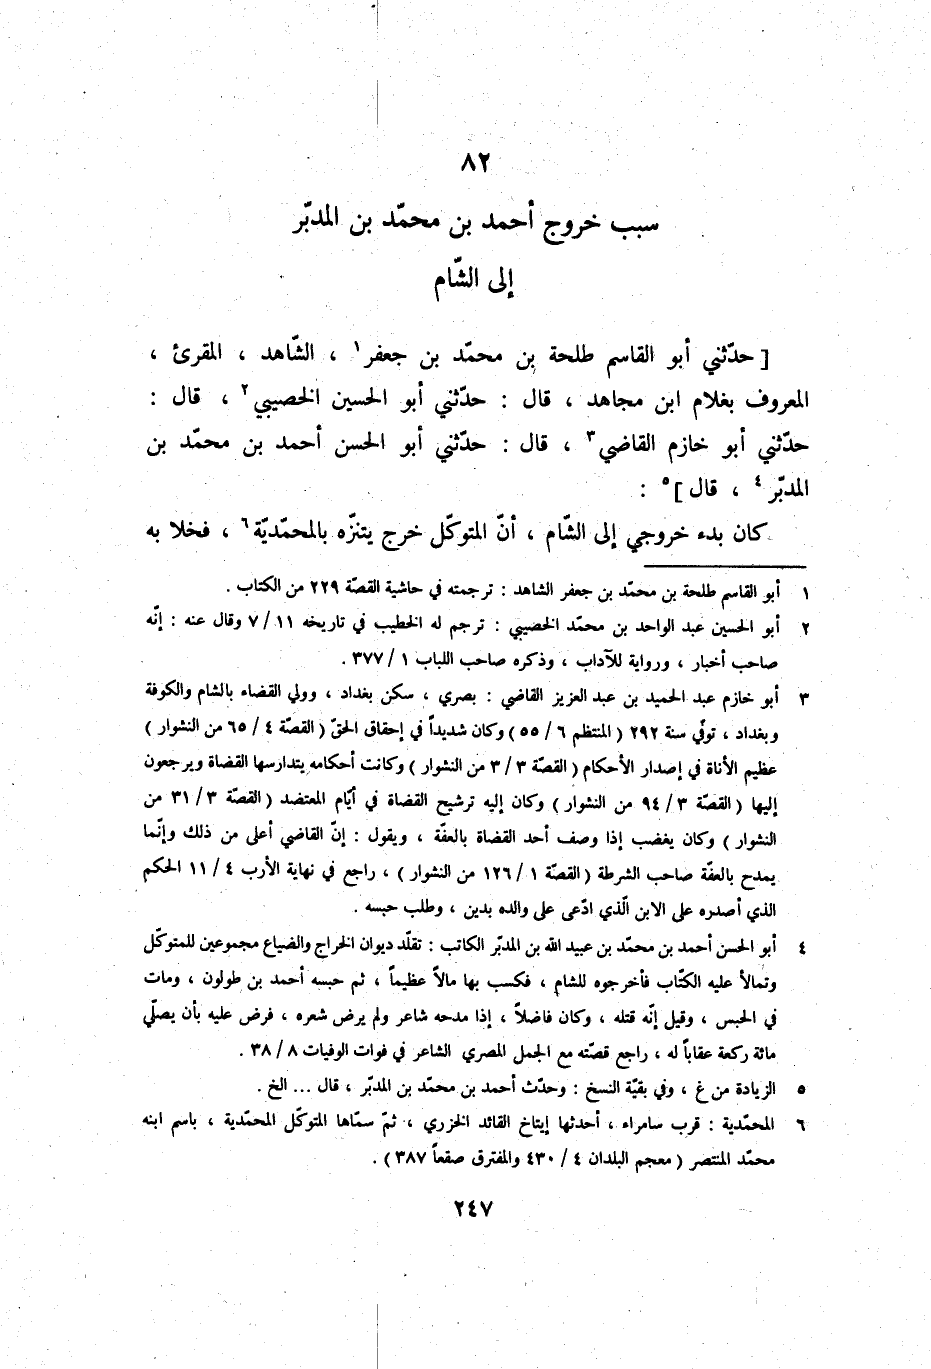 ٨٢
سبب خروج أحمد بن محمّد بن المدبّر
إلى الشّام
[ حدّثني أبو القاسم طلحة بن محمّد بن جعفر١ ، الشّاهد ، المقرئ ،
المعروف بغلام ابن مجاهد ، قال : حدّثني أبو الحسين الخصيبي٢ ، قال :
حدّثني أبو خازم القاضي٣ ، قال : حدّثني أبو الحسن أحمد بن محمّد بن
المدبّر٤ ، قال ]٥ :
كان بدء خروجي إلى الشّام ، أنّ المتوكّل خرج يتنزّه بالمحمّديّة٦ ، فخلا به
١ أبو القاسم طلحة بن محمّد بن جعفر الشاهد : ترجمته في حاشية القصّة ٢٢٩ من الكتاب .
٢ أبو الحسين عبد الواحد بن محمّد الخصيبي : ترجم له الخطيب في تاريخه ١١ / ٧ وقال عنه : إنّه
صاحب أخبار ، ورواية للآداب ، وذكره صاحب اللباب ١ / ٣٧٧ .
٣ أبو خازم عبد الحميد بن عبد العزيز القاضي : بصري ، سكن بغداد ، وولي القضاء بالشام والكوفة
وبغداد ، توفّي سنة ٢٩٢ ( المنتظم ٦ / ٥٥ ) وكان شديداً في إحقاق الحقّ ( القصّة ٤ / ٦٥ من النشوار )
عظيم الأناة في إصدار الأحكام ( القصّة ٣ / ٣ من النشوار ) وكانت أحكامه يتدارسها القضاة ويرجعون
إليها ( القصّة ٣ / ٩٤ من النشوار ) وكان إليه ترشيح القضاة في أيّام المعتضد ( القصّة ٣ / ٣١ من
النشوار ) وكان يغضب إذا وصف أحد القضاة بالعفّة ، ويقول : إنّ القاضي أعلى من ذلك وإنّما
يمدح بالعفّة صاحب الشرطة ( القصّة ١ / ١٢٦ من النشوار ) ، راجع في نهاية الأرب ٤ / ١١ الحكم
الذي أصدره على الابن الّذي ادّعى على والده بدين ، وطلب حبسه .
٤ أبو الحسن أحمد بن محمّد بن عبيد الله بن المدبّر الكاتب : تقلّد ديوان الخراج والضياع مجموعين للمتوكّل
وتمالأ عليه الكتّاب فأخرجوه للشام ، فكسب بها مالاً عظيماً ، ثم حبسه أحمد بن طولون ، ومات
في الحبس ، وقيل إنّه قتله ، وكان فاضلاً ، إذا مدحه شاعر ولم يرض شعره ، فرض عليه بأن يصلّي
مائة ركعة عقاباً له ، راجع قصّته مع الجمل المصري الشاعر في فوات الوفيات ٨ / ٣٨ .
٥ الزيادة من غ ، وفي بقيّة النسخ : وحدّث أحمد بن محمّد بن المدبّر ، قال ... الخ .
٦ المحمّدية : قرب سامراء ، أحدثها إيتاخ القائد الخزري ، ثمّ سمّاها المتوكّل المحمّدية ، باسم ابنه
محمّد المنتصر ( معجم البلدان ٤ / ٤٣٠ والمفترق صقعاً ٣٨٧ ) .
٢٤٧